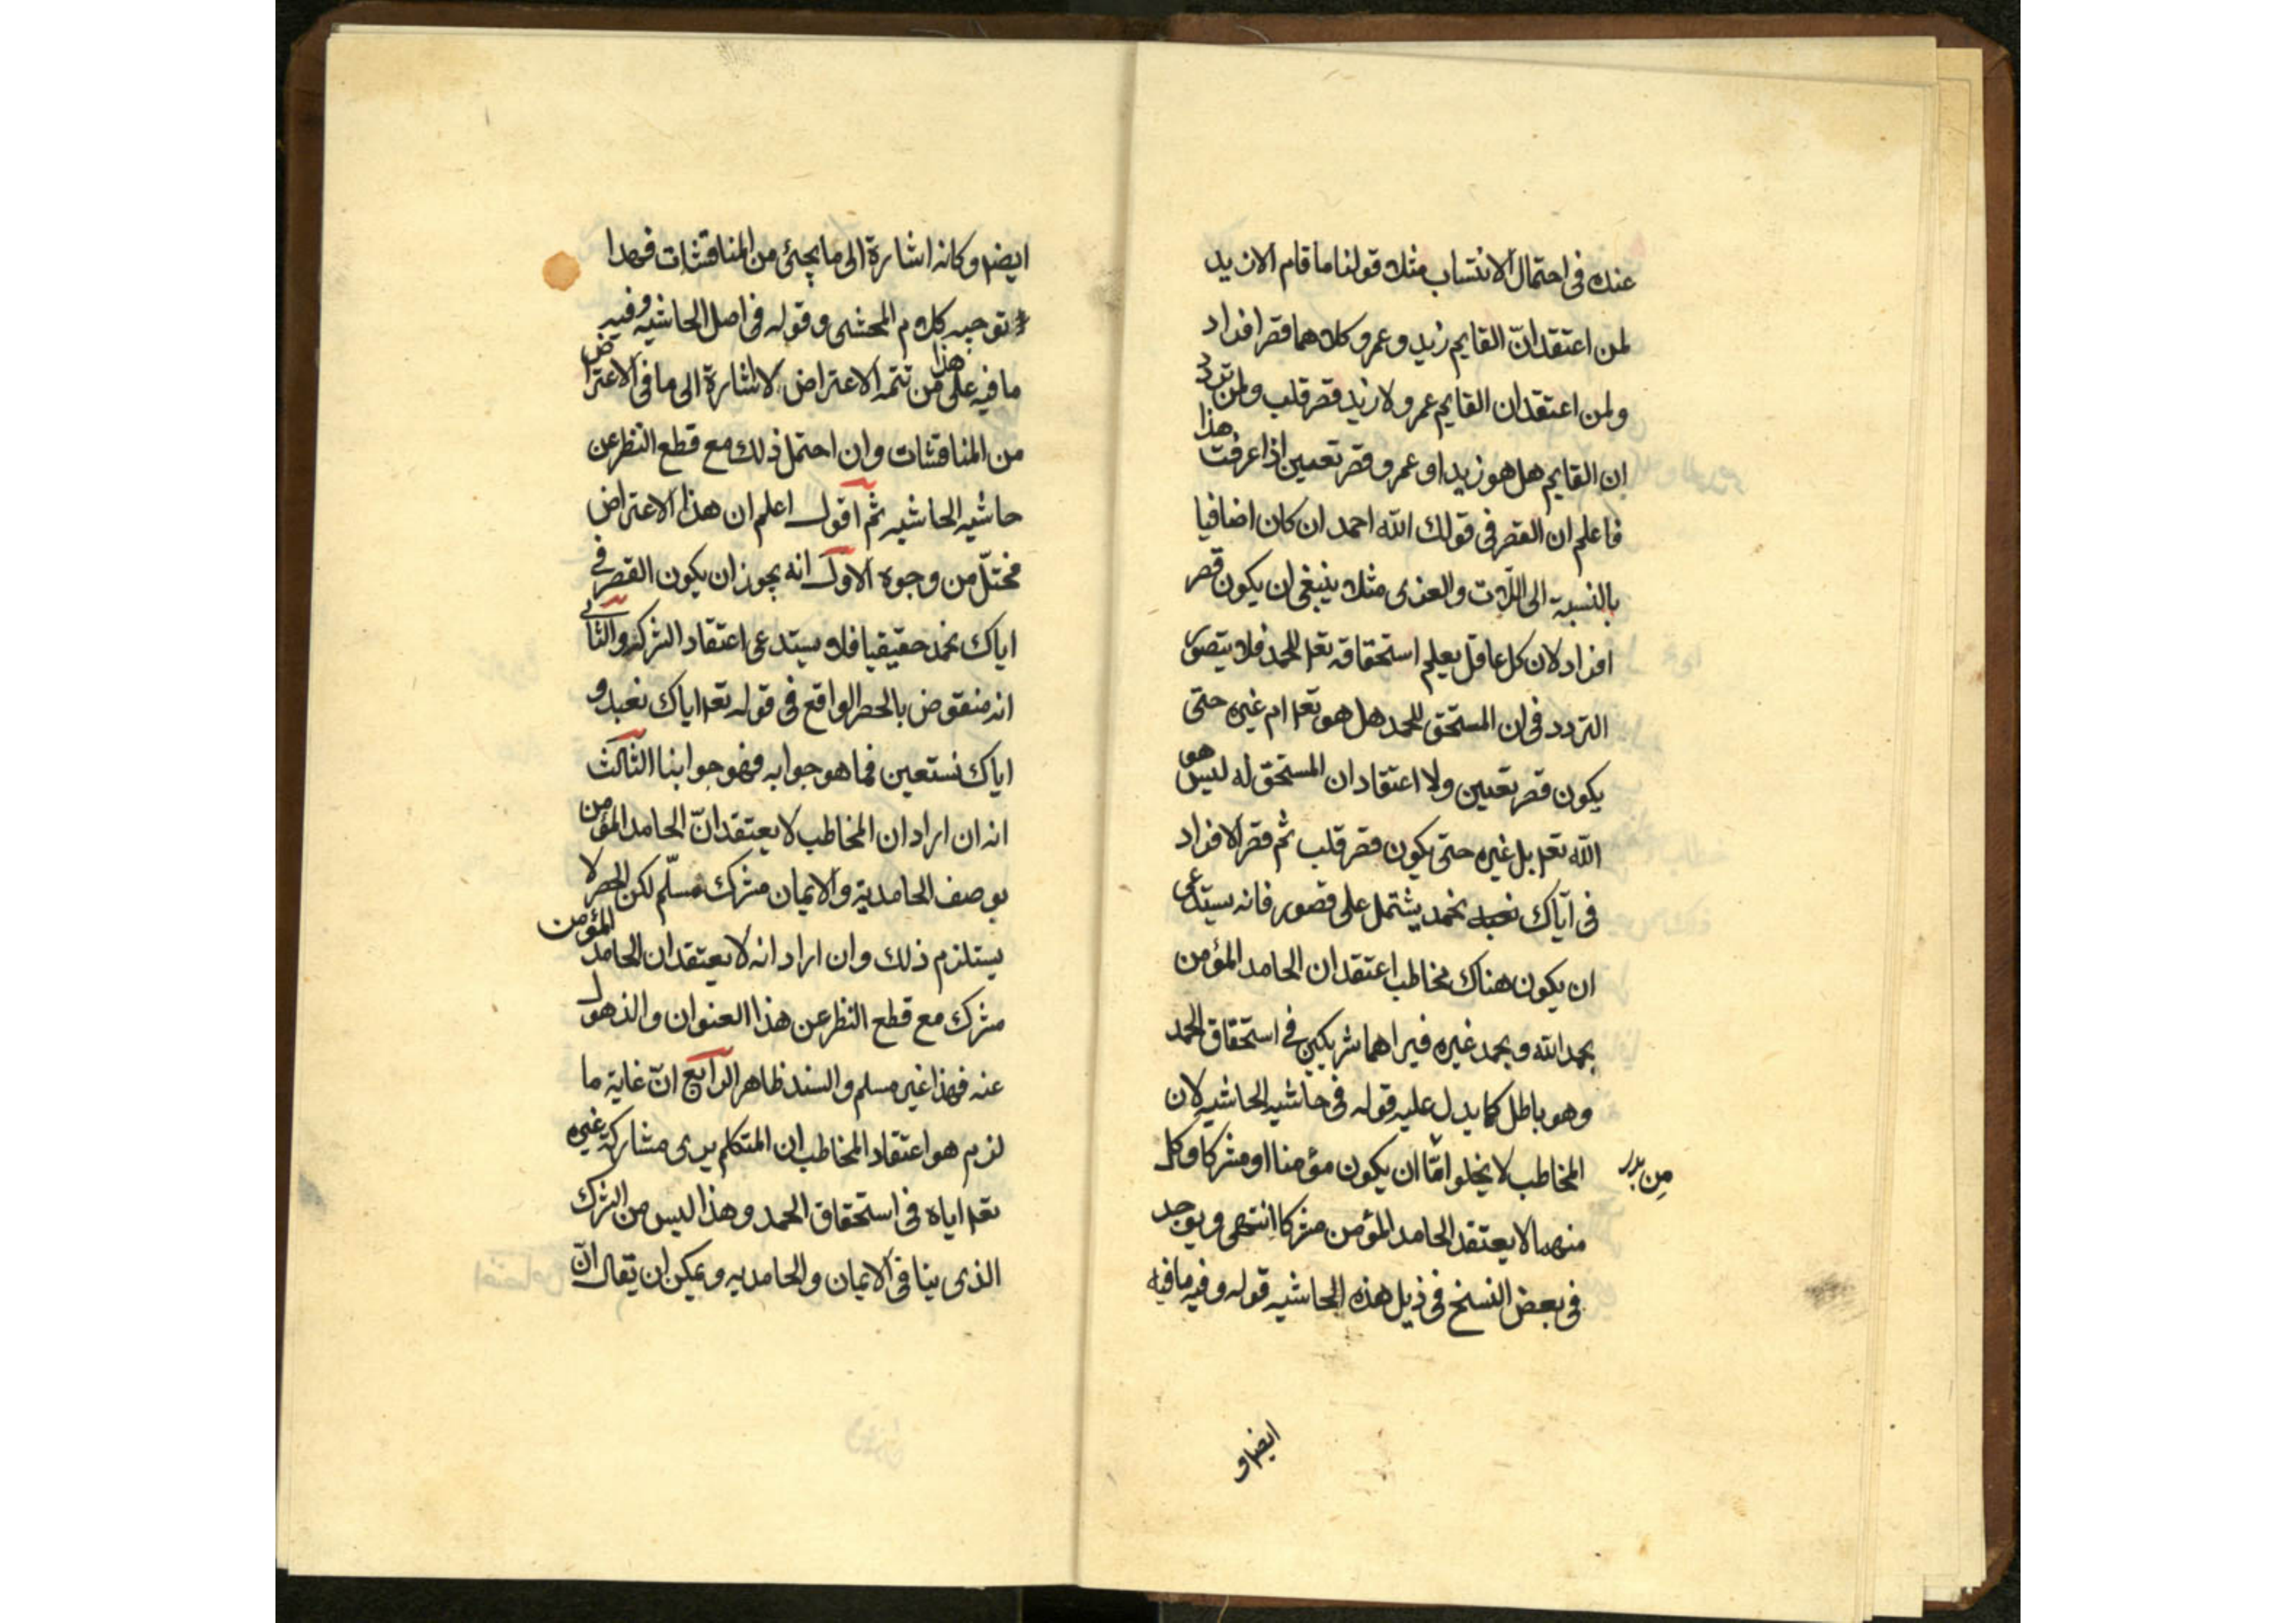 عنده فى احتمال الانتساب مثلا قولنا ما قام الا زيد
لمن اعتقد انّ القايم زيد و عمرو كلاهما قصر افراد
ولمن اعتقد ان القايم عمرو لا زيد قصر قلب ولمن تردد
ان القايم هل هو زيد او عمرو قصر تعيين اذا عرفت هذا
فاعلم ان القصر فى قولك الله احمد ان كان اضافيا
بالنسبة الى اللات والعزى مثلا ينبغى ان يكون قصر
افراد لان كل عاقل يعلم استحقاقه تعه للحمد فلا يتصور
التردد فى ان المستحق للحمد هل هو تعه ام غيره حتى
يكون قصر تعيين ولا اعتقاد ان المستحق له ليس هو
الله تعه بل غيره حتى يكون قصر قلب ثم قصر الافراد
فى اياك نعبد نحمد يشتمل على قصور فانه يستدعى
ان يكون هناك مخاطب اعتقد ان الحامد المؤمن
يحمد الله و يحمد غيره فيراهما شريكين فى استحقاق الحمد
وهو باطل كما يدل عليه قوله فى حاشيه الحاشيه لان
المخاطب لا يخلوا امّا ان يكون مؤمنا او مشركا وكل
منهما لا يعتقد الحامد المؤمن مشركا انتهى و يوجد
فى بعض النسخ فى ذيل هذه الحاشيه قوله وفيه ما فيه
ايضه و
ايضه و كانه اشارة الى ما يجئ من المناقشات فهذا
توجيه كلام المحشى و قوله فى اصل الحاشيه وفيه
ما فيه على هذا من تتمه الاعتراض لا اشارة الى ما فى الاعتراض
من المناقشات وان احتمل ذلك مع قطع النظر عن
حاشيه الحاشيه ثم اقول اعلم ان هذا الاعتراض
مختلّ من وجوه الاول انه يجوز ان يكون القصر فى
اياك نحمد حقيقيا فلا يستدعى اعتقاد الشركه والثانى
انه منقوض بالحصر الواقع فى قوله تعه اياك نعبد و
اياك نستعين فما هو جوابه فهو جوابنا الثالث
انه ان اراد ان المخاطب لا يعتقد انّ الحامد المؤمن
بوصف الحامدية والايمان مشرك مسلّم لكن الحصر لا
يستلزم ذلك وان اراد انه لا يعتقد ان الحامد المؤمن
مشرك مع قطع النظر عن هذا العنوان والذهول
عنه فهذا غير مسلم والسند ظاهر الرابع انّ غاية ما
لزم هو اعتقاد المخاطب ان المتكلم يرى مشاركة غيره
تعه اياه فى استحقاق الحمد وهذا ليس من الشرك
الذى ينافى الايمان والحامديه و يمكن ان يقال انّ